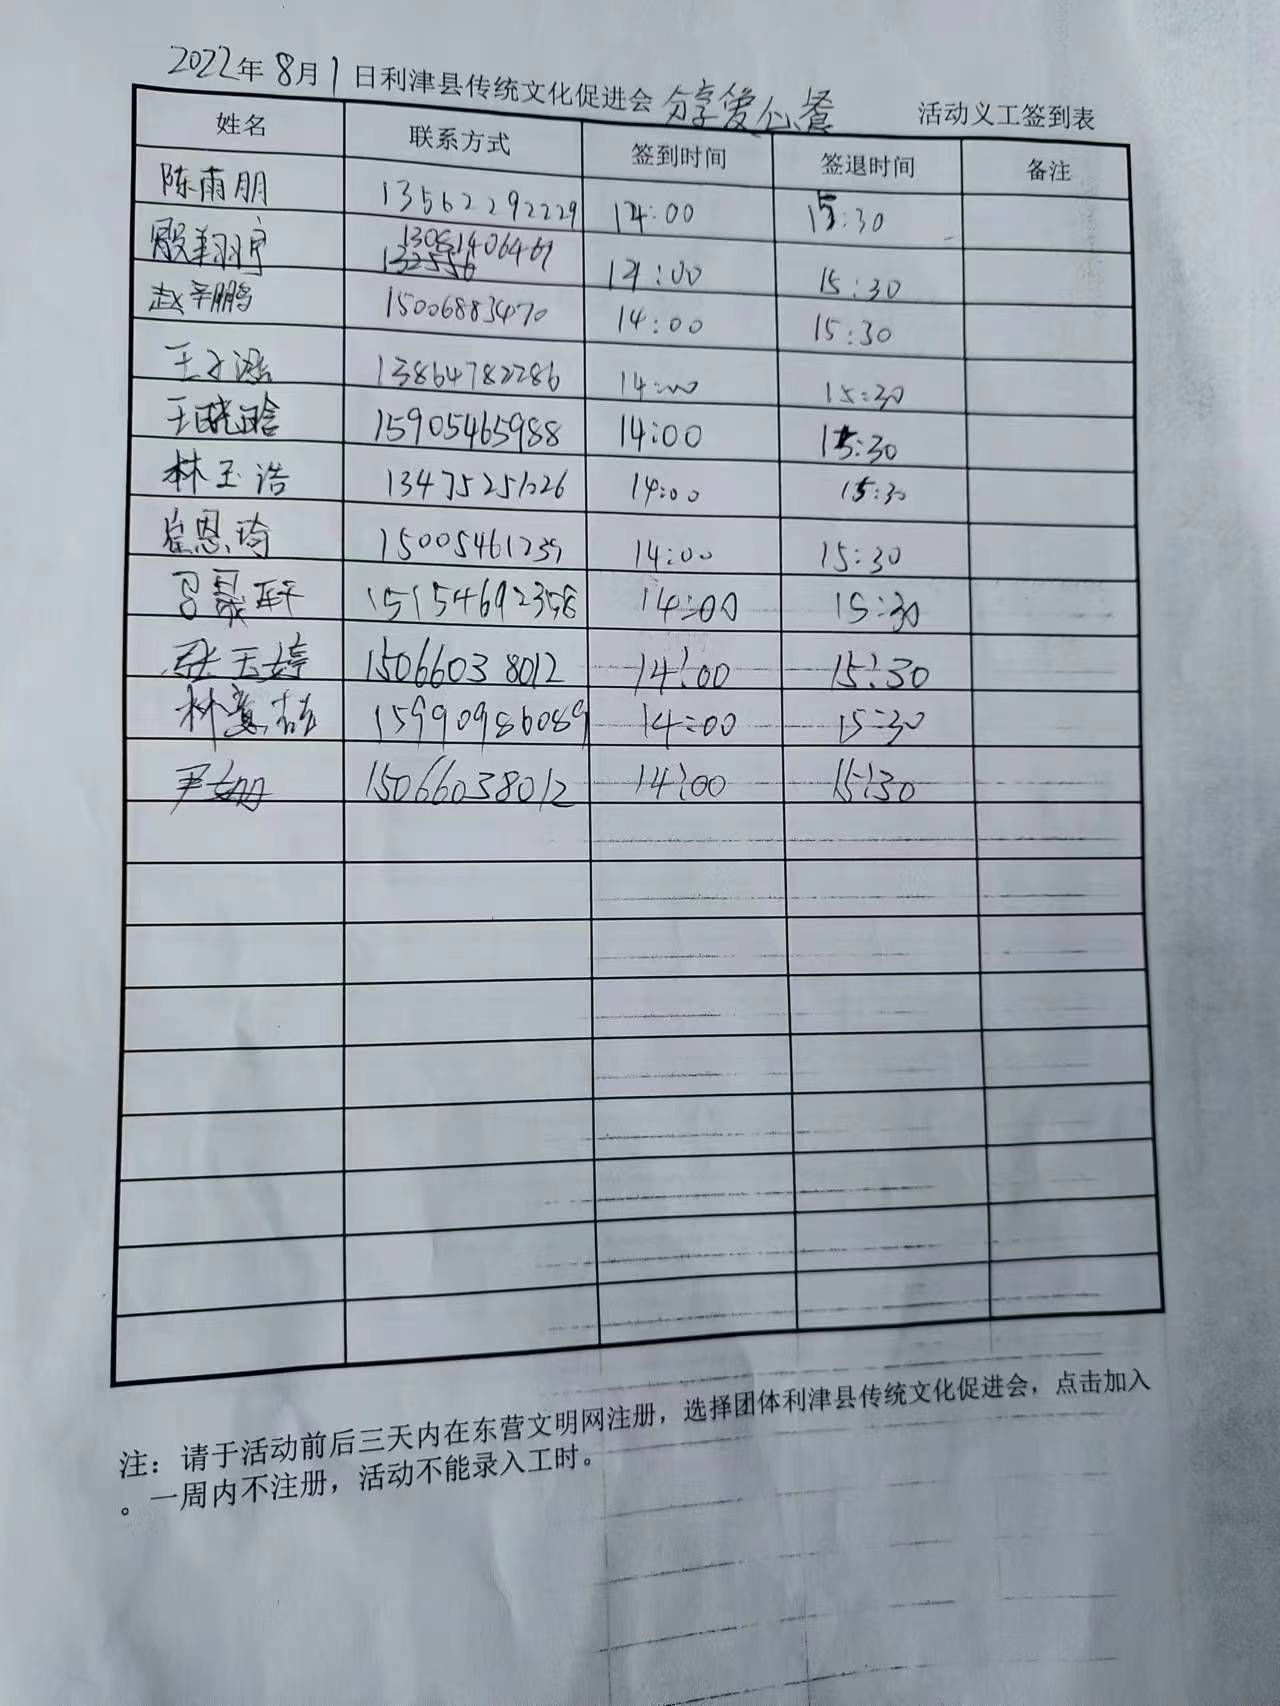 2022年8月1日利津县传统文化促进会 分享爱心餐 活动义工签到表
姓名 联系方式 签到时间 签退时间 备注
陈雨朋 13562292229 14:00 15:30
殷翔宇 13081406461 14:00 15:30
赵辛鹏 15006883470 14:00 15:30
王子涵 13864782286 14:00 15:30
王晓晗 15905465988 14:00 15:30
林玉浩 13475251026 14:00 15:30
崔恩琦 15005461239 14:00 15:30
吕晟轩 15154692358 14:00 15:30
张玉婷 15066038012 14:00 15:30
林意喆 15990986089 14:00 15:30
尹姗 15066038012 14:00 15:30
注：请于活动前后三天内在东营文明网注册，选择团体利津县传统文化促进会，点击加入
。一周内不注册，活动不能录入工时。